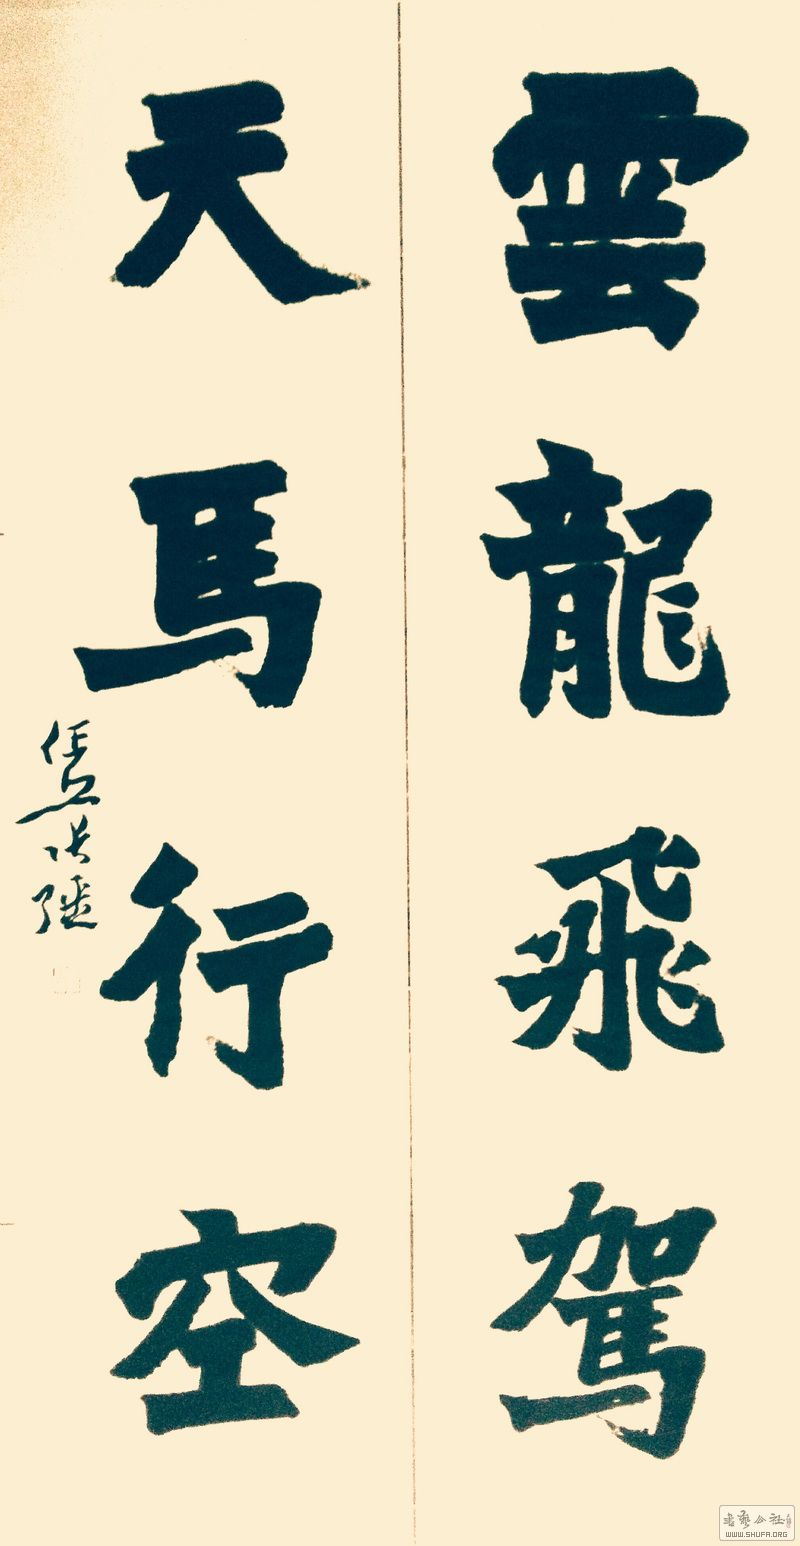 雲龍飛駕
天馬行空
WWW.SHUFA.ORG